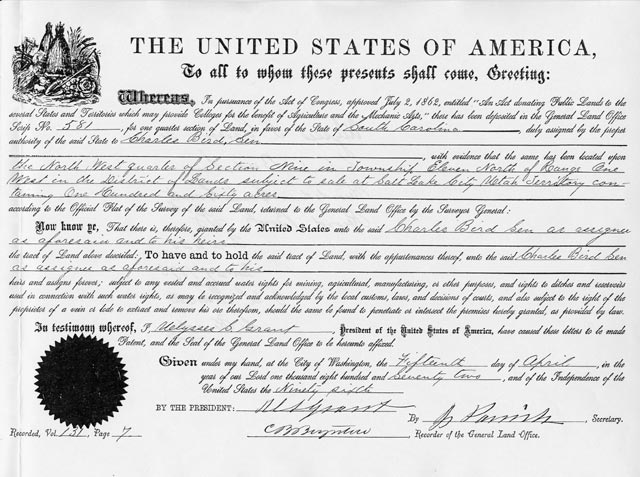 THE UNITED STATES OF AMERICA,
To all to whom these presents shall come, Greeting:
Whereas, In pursuance of the Act of Congress, approved July 2, 1862, entitled "An Act donating Public Lands to the
several States and Territories which may provide Colleges for the benefit of Agriculture and the Mechanic Arts," there has been deposited in the General Land Office
Scrip No. 581, for one quarter section of Land, in favor of the State of South Carolina duly assigned by the proper
authority of the said State to Charles Bird, Sen
, with evidence that the same has been located upon
the North West quarter of Section Nine in Township Eleven North of Range One
West in the District of Lands subject to sale at Salt Lake City Utah Territory con-
taining One Hundred and Sixty acres
according to the Official Plat of the Survey of the said Land, returned to the General Land Office by the Surveyor General:
Now know ye, That there is, therefore, granted by the United States unto the said Charles Bird Sen as assignee
as aforesaid and to his heirs
the tract of Land above described: To have and to hold the said tract of Land, with the appurtenances thereof, unto the said Charles Bird Sen
as assignee as aforesaid and to his
heirs and assigns forever; subject to any vested and accrued water rights for mining, agricultural, manufacturing, or other purposes, and rights to ditches and reservoirs
used in connection with such water rights, as may be recognized and acknowledged by the local customs, laws, and decisions of courts, and also subject to the right of the
proprietor of a vein or lode to extract and remove his ore therefrom, should the same be found to penetrate or intersect the premises hereby granted, as provided by law.
In testimony whereof, I, Ulysses S. Grant, President of the United States of America, have caused these letters to be made
Patent, and the Seal of the General Land Office to be hereunto affixed.
Given under my hand, at the City of Washington, the Fifteenth day of April, in the
year of our Lord one thousand eight hundred and Seventy two, and of the Independence of the
United States the Ninety sixth
BY THE PRESIDENT: U S Grant
By Parrish Secretary.
Recorded, Vol. 131, Page 7
Recorder of the General Land Office.